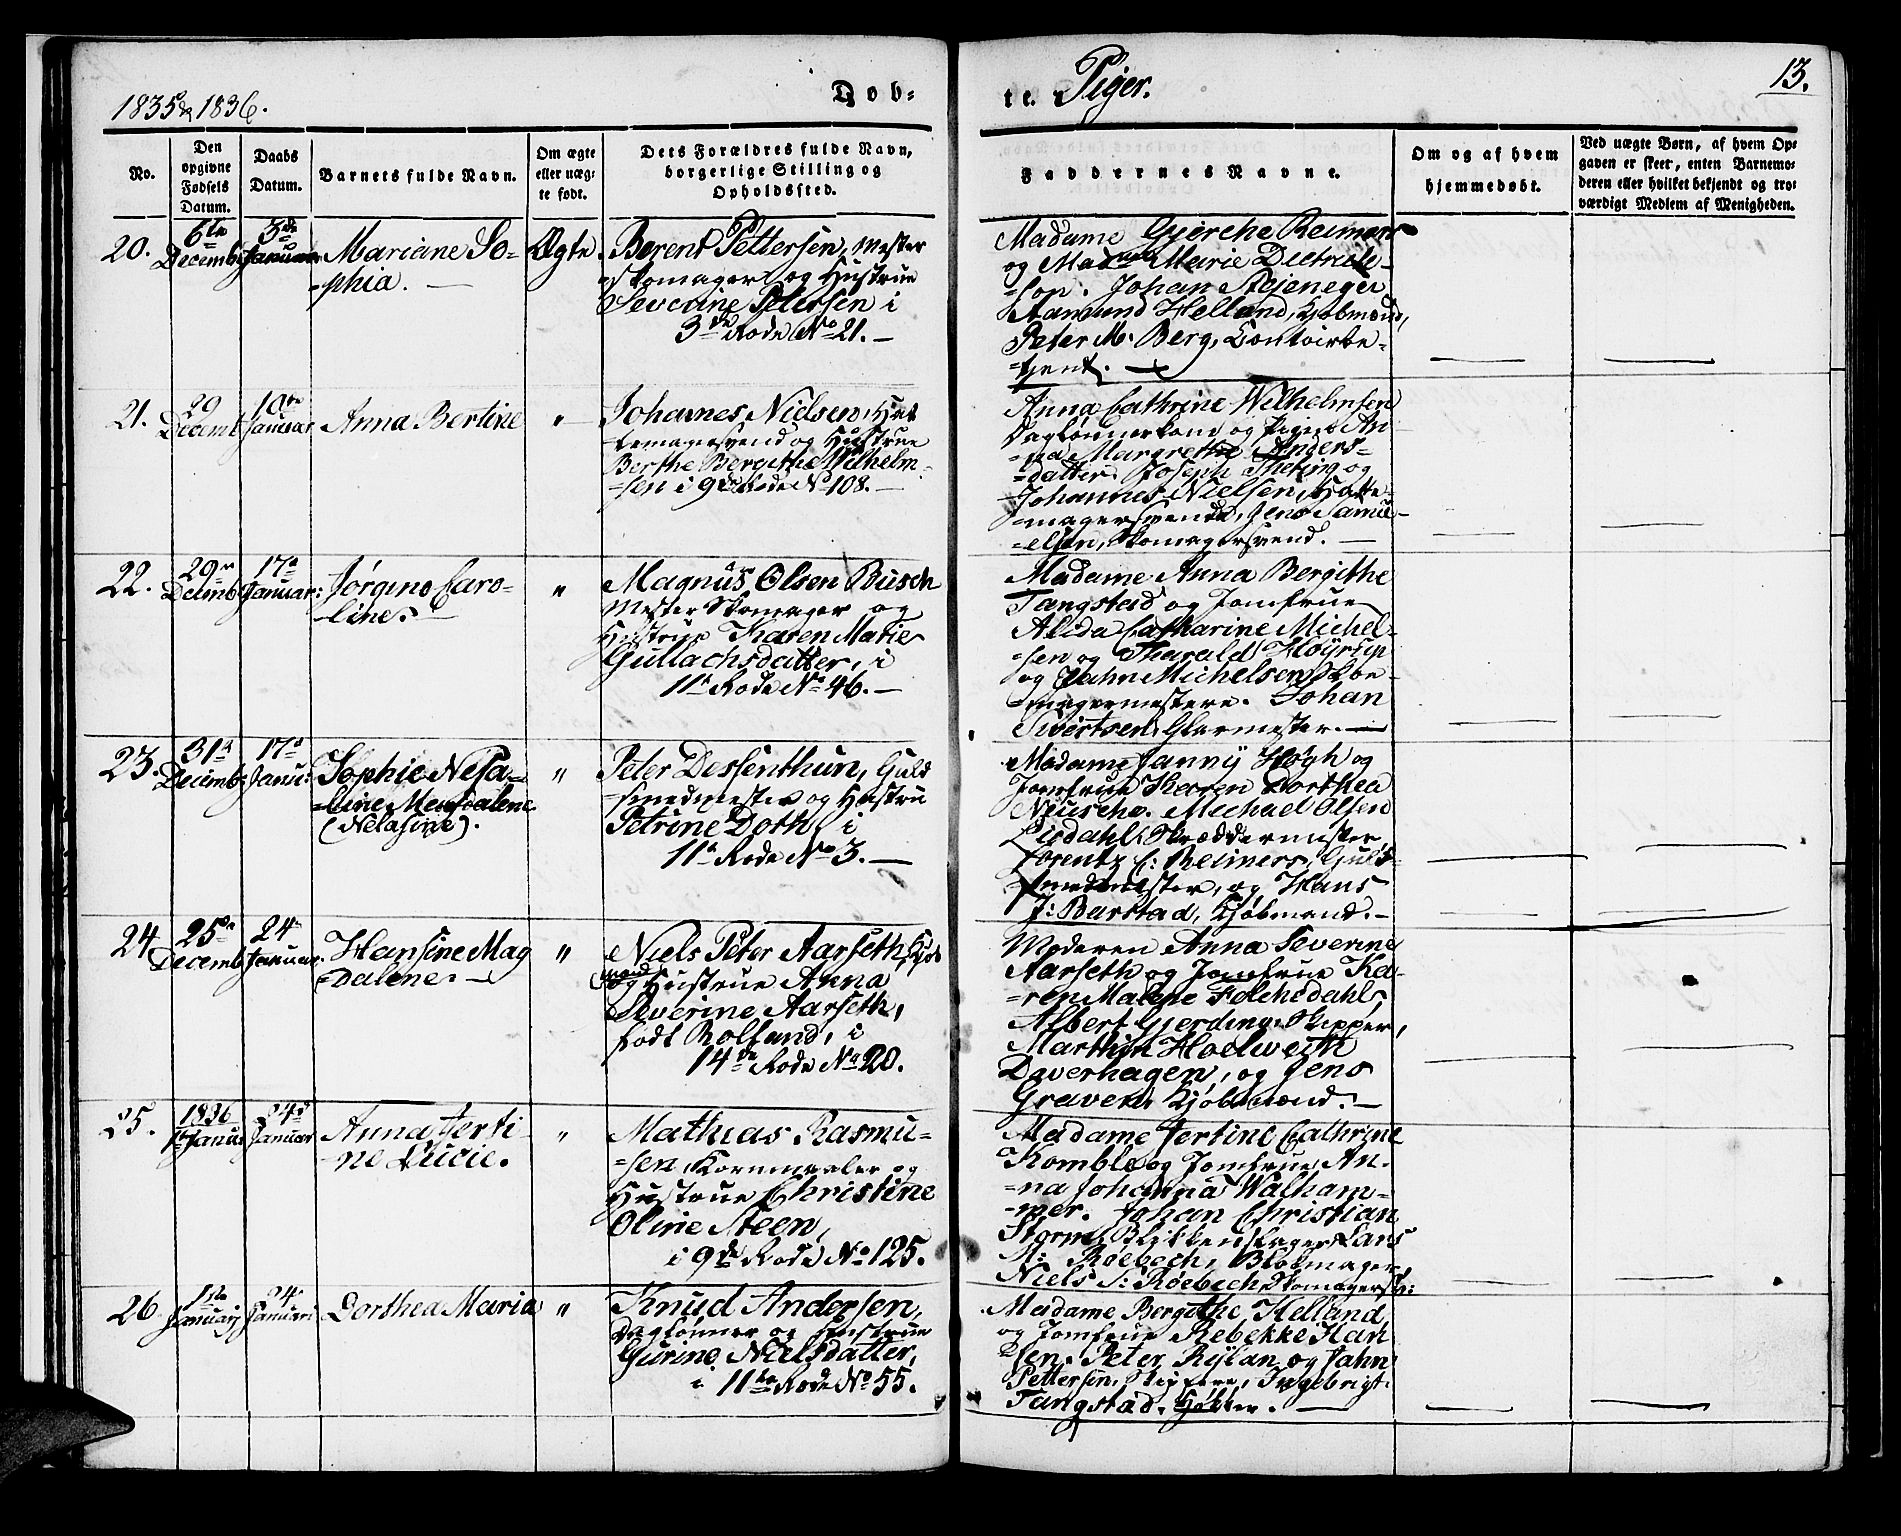 1835 & 1836.
Døb-
te Piger.
13.
No.
Den opgivne Fødsels Datum.
Daabs Datum.
Barnets fulde Navn.
Om ægte eller uægte født.
Dets Forældres fulde Navn, borgerlige Stilling og Opholdssted.
Faddernes Navne.
Om og af hvem hjemmedøbt.
Ved uægte Børn, af hvem Opgaven er skeet, enten Barnemoderen eller hvilket bekjendt og troværdigt Medlem af Menigheden.
20.
6te Decemb
3de Januar
Mariane So-
-phia.
Ægte
Berent Pettersen, Mester
Skomager og Hustrue
Severine Petersen i
3de Rode No 21.
Madame Gjerche Reimers
og Madme Marie Dietrich-
-son. Johan
Aamund Helland, Kjøbmænd,
Peter M. Berg, Contoirbe-
-tjent.
21.
29 Decemb
10de Januar
Anna Bertine
"
Johannes Nielsen, Hat-
-temagersvend og Hustrue
Berthe Bergithe Wilhelm-
-sen i 9de Rode No 108.
Anna Cathrine Wilhelmsen
Daglønnerkone og Pigen An-
-na Margrethe Anders-
-datter. Joseph Theting og
Johannes Nielsen, Hatte-
-magersvende, Jens Samu-
-elsen, Skomagersvend.
22.
29 Decmb
17de Januar:
Jørgine Caro-
-line.
"
Magnus Olsen Busch
Mester Skomager og
Hustrue Karen Marie
Gullachsdatter, i
11te Rode No 46.
Madame Anna Bergithe
Tangstad og Jomfrue
Alida Catharine Michel-
-sen og Tharald Høyrsen
og Jahn Michelsen, Skoe-
-magermestere. Johan
Sivertsen, Glarmester.
23.
31te Decemb
17de Janu:
Sophie Nesa-
-line Magdalene
(Nelasine).
"
Peter Dessenthun, Guld-
-smedmester og Hustru
Petrine Doth, i
11te Rode No 3.
Madame Fanny Høgh og
Jomfrue Karen Dorthea
Nusche. Michael Olsen
Lisdahl, Skræddermester
Lorentz C: Reimers, Guld-
-smedmester, og Hans
J: Barstad, Kjøbmand.
24
25de Decemb
24 Januar.
Hansine Mag
-dalene.
"
Niels Peter Aarseth, Kjøb-
mand
og Hustrue Anna
Severine Aarseth,
født Rolfand, i
14de Rode No 20.
Moderen Anna Severine
Aarseth og Jomfrue Ka-
-ren Malene Folchedahl,
Albert Gjerding, Skipper,
Marthin Hoelweith
Daverhagen, og Jens
Graven, Kjøbmænd.
25.
1836
1te Januar
24d Januar
Anna Jerti-
-ne Lucie.
"
Mathias Rasmu-
-sen, Kornmaaler og
Hustrue Christine
Oline Steen,
i 9de Rode No 125.
Madame Jertine Cathrine
Komble og Jomfrue An-
-na Johanna Walham-
-mer. Johan Christian
Storm, Blikkenslager, Lars
M: Roebech, Blokmager,
Niels S: Roebech, Skomagersv:
26.
1ste Januar
24 Januari
Dorthea Maria
"
Knud Andersen,
Daglønner og Hustrue
Gurine Nielsdatter,
i 11te Rode No 55.
Madame Bergithe Helland
og Jomfrue Rebekke Han
sen. Peter Rylan og Jahn
Pettersen, Ingebrigt
Tangstad, Høkker.